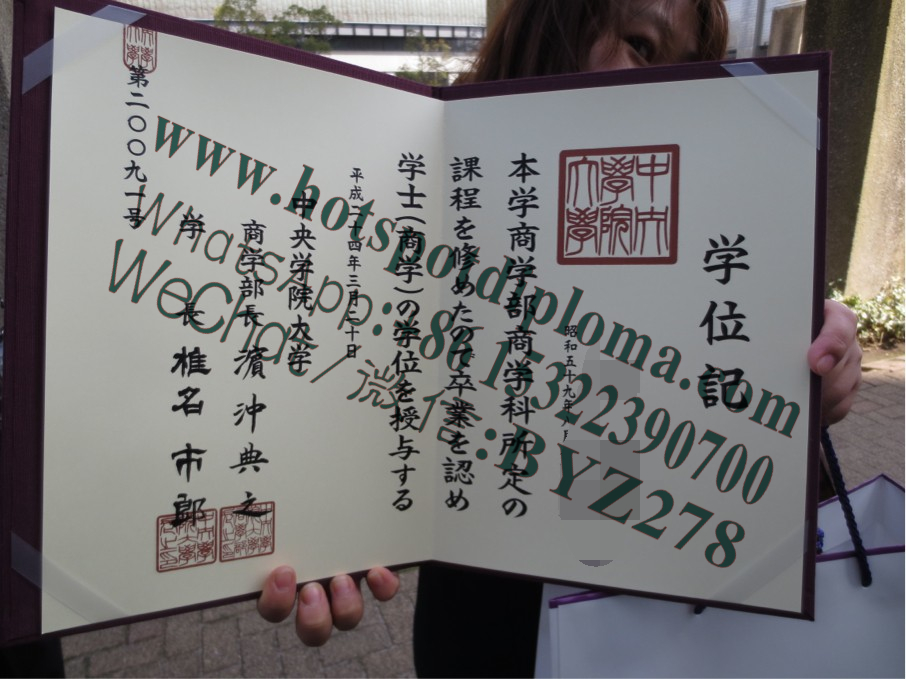 学位記
中央學院大學
昭和五十九年
本学商学部商学科所定の
課程を修めたので卒業を認め
学士(商学)の学位を授与する
平成二十四年三月二十日
中央学院大学
商学部長 濱沖典之
学長 椎名市郎
第二〇〇九
www.hotspotdiploma.com
WhatsApp:+86 15322390700
WeChat/微信:BYZ278